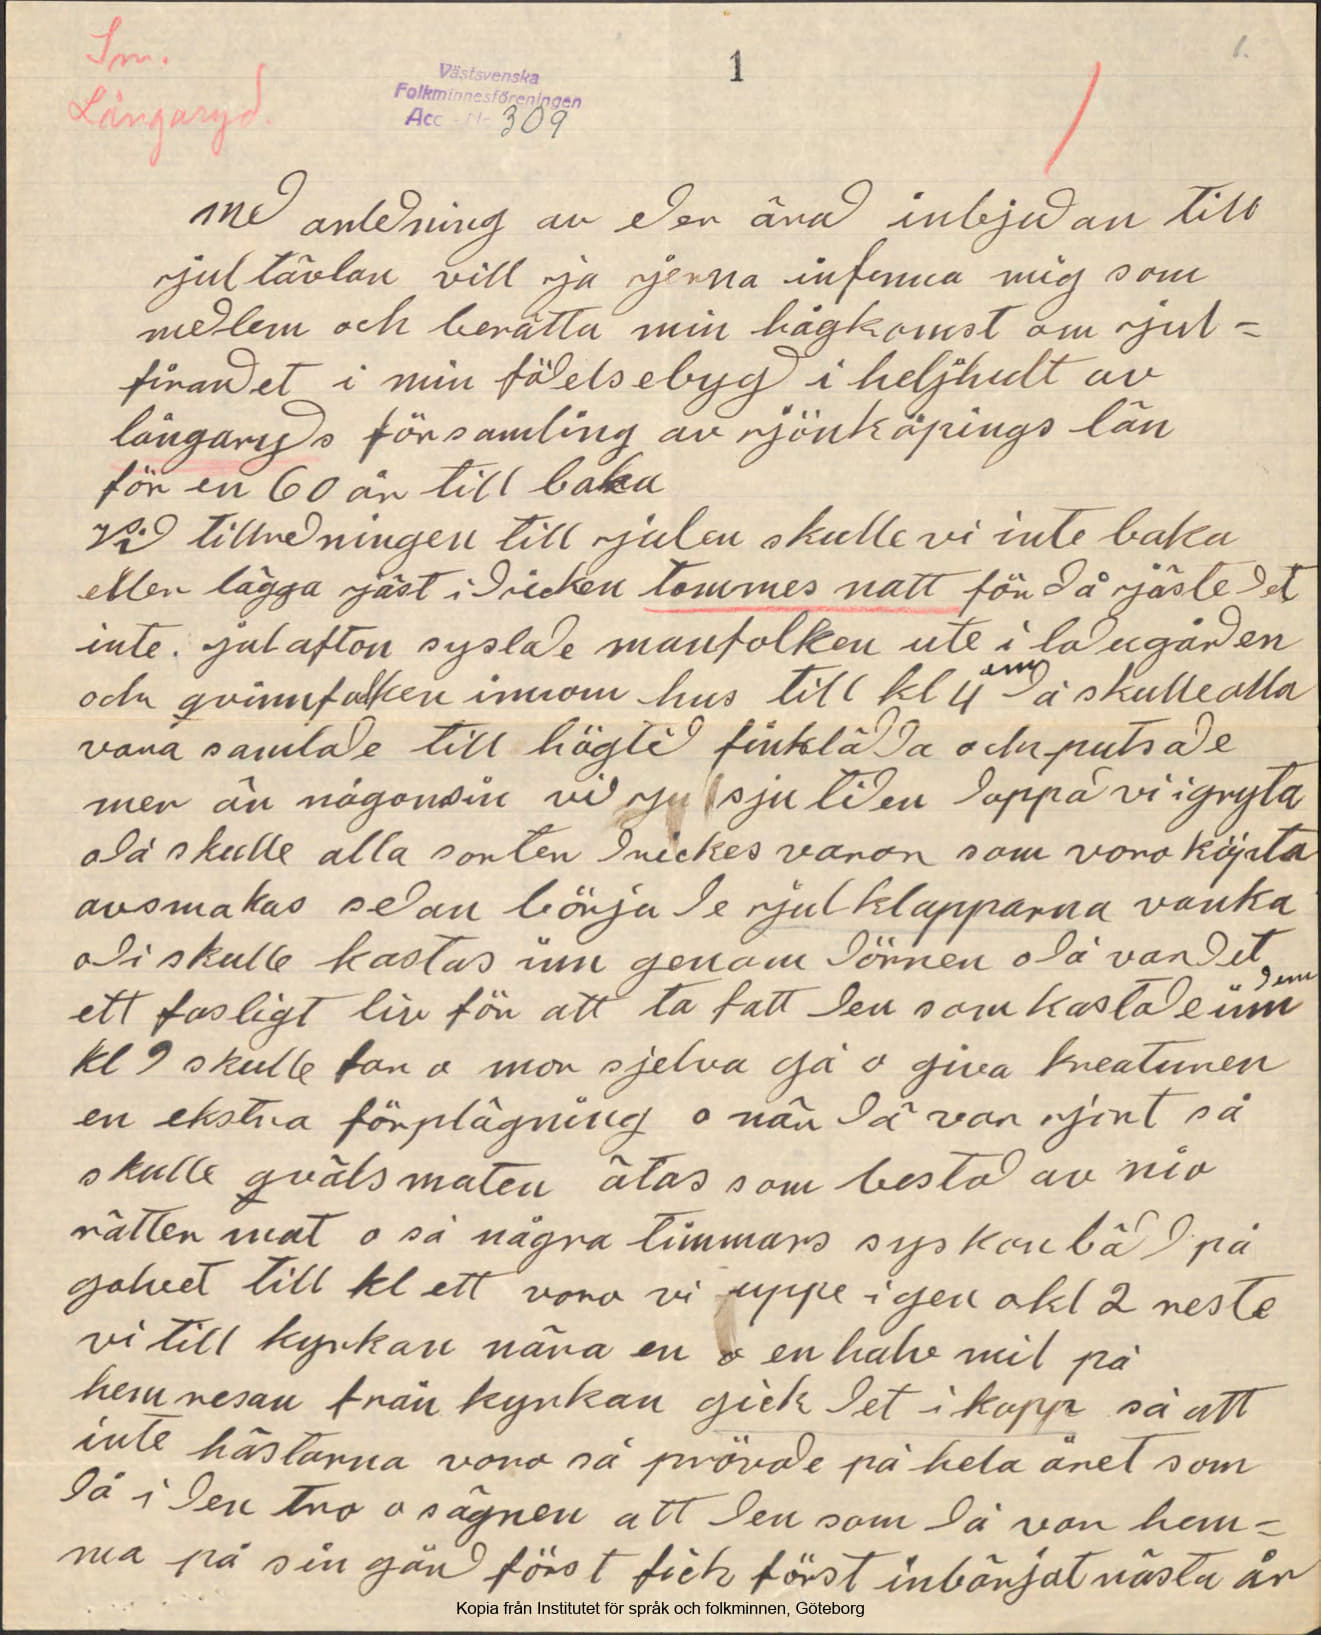 Sm.
Långaryd.
Västsvenska
Folkminnesföreningen
Acc - Nr 309
1
1.
Med anledning av eder ärad inbjudan till
rjultävlan vill rja rjerna infinna mig som
medlem och berätta min hågkomst om rjul=
firandet i min födelsebygd i heljhult av
långaryds församling av rjönköpings län
för en 60 år till baka
Vid tillredningen till rjulen skulle vi inte baka
eller lägga rjäst i dricken tommes natt för då rjäste det
inte. rjulafton syslade manfolken ute i ladugården
och qvinnfolken innom hus till kl 4 em då skulle alla
vara samlade till högtid finklädda och putsade
mer än någonsin vid rjulsjutiden doppa vi i gryta
o då skulle alla sorter drickes varor som voro köpta
avsmakas sedan börja de rjulklapparna vanka
o di skulle kastas inn genom dörren o då var det
ett fasligt liv för att ta fatt den som kastade dem inn
kl 9 skulle far o mor sjelva gå o giva kreaturen
en ekstra förplägning o när då var rjort så
skulle qvälsmaten ätas som bestod av nio
rätter mat o så några timmars syskonbädd på
golvet till kl ett voro vi uppe igen o kl 2 reste
vi till kyrkan nära en o en halv mil på
hemresan från kyrkan gick det i kapp så att
inte hästarna voro så prövade på hela året som
då i den tro o sägnen att den som då var hem=
ma på sin gård först fick först inbärjat nästa år
Kopia från Institutet för språk och folkminnen, Göteborg